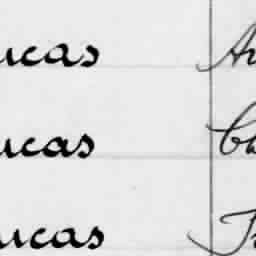 ucas A
ucas Ch
ucas F